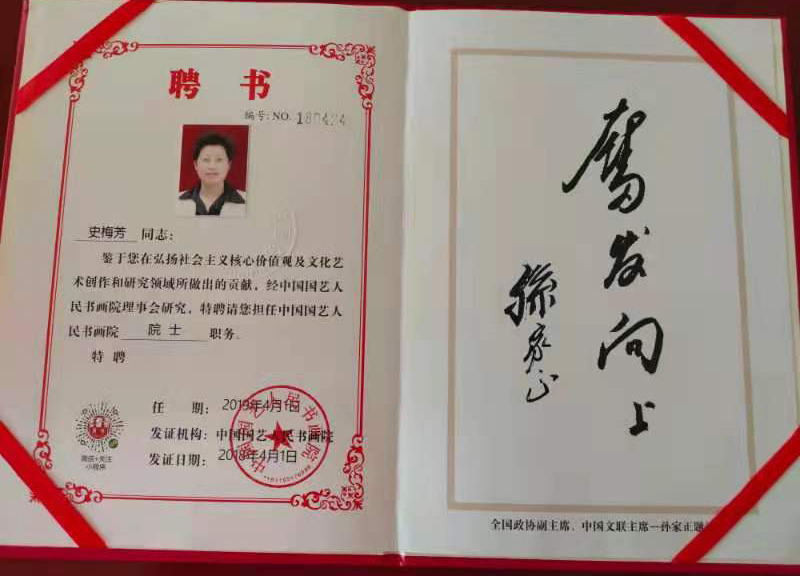 聘书
编号: NO. 180424
史梅芳 同志:
鉴于您在弘扬社会主义核心价值观及文化艺
术创作和研究领域所做出的贡献，经中国国艺人
民书画院理事会研究，特聘请您担任中国国艺人
民书画院 院士 职务。
特聘
任 期: 2019年4月1日
发证机构: 中国国艺人民书画院
发证日期: 2018年4月1日
微信+关注
小程序
中国国艺人民书画院
奋发向上
孙家正
全国政协副主席、中国文联主席—孙家正题